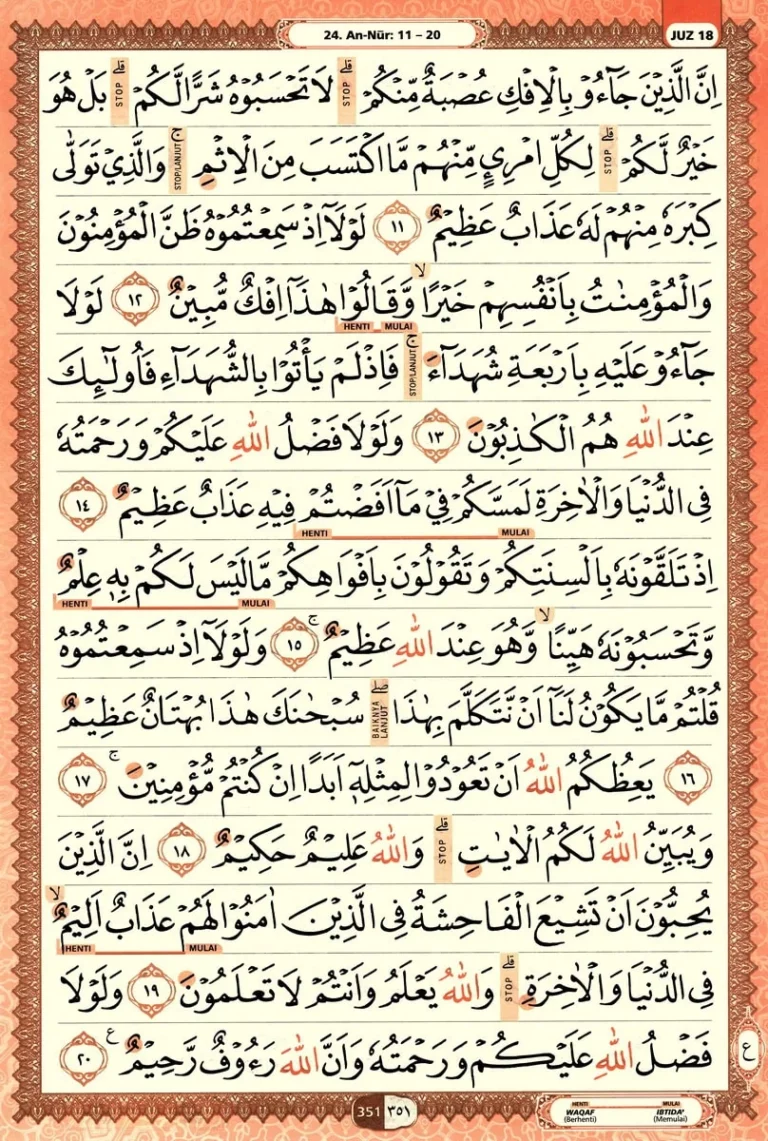 24. An-Nūr: 11 – 20
JUZ 18
اِنَّ الَّذِيْنَ جَاۤءُوْ بِالْاِفْكِ عُصْبَةٌ مِّنْكُمْۗ لَا تَحْسَبُوْهُ شَرًّا لَّكُمْۗ بَلْ هُوَ
STOP STOP
خَيْرٌ لَّكُمْۗ لِكُلِّ امْرِئٍ مِّنْهُمْ مَّا اكْتَسَبَ مِنَ الْاِثْمِۚ وَالَّذِيْ تَوَلّٰى
STOP STOP/LANJUT
كِبْرَهٗ مِنْهُمْ لَهٗ عَذَابٌ عَظِيْمٌ ١١ لَوْلَآ اِذْ سَمِعْتُمُوْهُ ظَنَّ الْمُؤْمِنُوْنَ
وَالْمُؤْمِنٰتُ بِاَنْفُسِهِمْ خَيْرًاۙ وَّقَالُوْا هٰذَآ اِفْكٌ مُّبِيْنٌ ١٢ لَوْلَا
HENTI MULAI
جَاۤءُوْ عَلَيْهِ بِاَرْبَعَةِ شُهَدَاۤءَۚ فَاِذْ لَمْ يَأْتُوْا بِالشُّهَدَاۤءِ فَاُولٰۤىِٕكَ
STOP/LANJUT
عِنْدَ اللّٰهِ هُمُ الْكٰذِبُوْنَ ١٣ وَلَوْلَا فَضْلُ اللّٰهِ عَلَيْكُمْ وَرَحْمَتُهٗ
فِى الدُّنْيَا وَالْاٰخِرَةِ لَمَسَّكُمْ فِيْ مَآ اَفَضْتُمْ فِيْهِ عَذَابٌ عَظِيْمٌ ١٤
HENTI MULAI
اِذْ تَلَقَّوْنَهٗ بِاَلْسِنَتِكُمْ وَتَقُوْلُوْنَ بِاَفْوَاهِكُمْ مَّا لَيْسَ لَكُمْ بِهٖ عِلْمٌ
HENTI MULAI
وَّتَحْسَبُوْنَهٗ هَيِّنًاۙ وَّهُوَ عِنْدَ اللّٰهِ عَظِيْمٌ ۚ ١٥ وَلَوْلَآ اِذْ سَمِعْتُمُوْهُ
قُلْتُمْ مَّا يَكُوْنُ لَنَآ اَنْ نَّتَكَلَّمَ بِهٰذَاۖ سُبْحٰنَكَ هٰذَا بُهْتَانٌ عَظِيْمٌ
BAIKNYA LANJUT
١٦ يَعِظُكُمُ اللّٰهُ اَنْ تَعُوْدُوْا لِمِثْلِهٖٓ اَبَدًا اِنْ كُنْتُمْ مُّؤْمِنِيْنَ ۚ ١٧
وَيُبَيِّنُ اللّٰهُ لَكُمُ الْاٰيٰتِۗ وَاللّٰهُ عَلِيْمٌ حَكِيْمٌ ١٨ اِنَّ الَّذِيْنَ
STOP
يُحِبُّوْنَ اَنْ تَشِيْعَ الْفَاحِشَةُ فِى الَّذِيْنَ اٰمَنُوْا لَهُمْ عَذَابٌ اَلِيْمٌۙ
HENTI MULAI
فِى الدُّنْيَا وَالْاٰخِرَةِۗ وَاللّٰهُ يَعْلَمُ وَاَنْتُمْ لَا تَعْلَمُوْنَ ١٩ وَلَوْلَا
STOP
فَضْلُ اللّٰهِ عَلَيْكُمْ وَرَحْمَتُهٗ وَاَنَّ اللّٰهَ رَءُوْفٌ رَّحِيْمٌ ع ٢٠
ع
351 ٣٥١
HENTI MULAI
WAQAF IBTIDA'
(Berhenti) (Memulai)